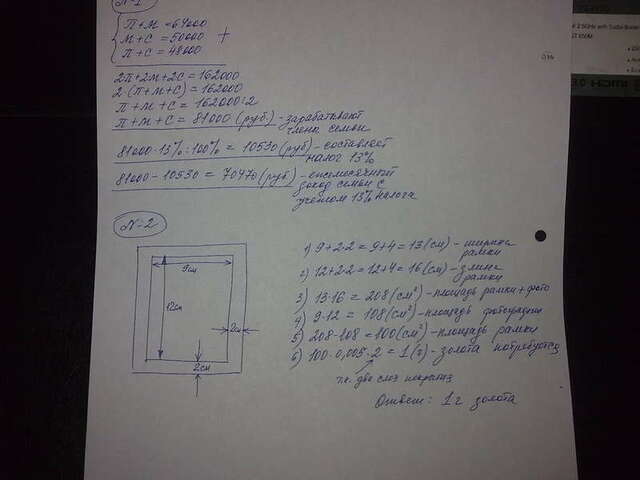 N-1
П+М = 64000
М+С = 50000
П+С = 48000
2П+2М+2С = 162000
2(П+М+С) = 162000
П+М+С = 162000:2
П+М+С = 81000 (руб) - зарабатывают
члены семьи
81000·13%:100% = 10530 (руб) - составляет
налог 13%
81000-10530 = 70470 (руб) - ежемесячный
доход семьи с
учётом 13% налога
N-2
9см
12см
2см
2см
1) 9+2·2 = 9+4 = 13 (см) - ширина
рамки
2) 12+2·2 = 12+4 = 16 (см) - длина
рамки
3) 13·16 = 208 (см²) - площадь рамки + фото
4) 9·12 = 108 (см²) - площадь фотографии
5) 208-108 = 100 (см²) - площадь рамки
6) 100·0,005·2 = 1 (г) - золота потребуется
т.к. два слоя покрытия
Ответ: 1 г золота